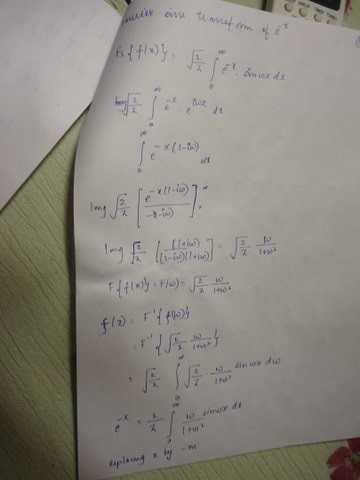 sine transform of e^-x
Fs{f(x)} = √(2/π) ∫₀^∞ e^-x · sinωx dx
Img √(2/π) ∫₀^∞ e^-x e^iωx dx
∫₀^∞ e^-x(1-iω) dx
Img √(2/π) [e^-x(1-iω) / -(1-iω)]₀^∞
Img √(2/π) [(1+iω) / (1-iω)(1+iω)] = √(2/π) ω/1+ω²
F{f(x)} = F(ω) = √(2/π) ω/1+ω²
f(x) = F⁻¹{f(ω)}
= F⁻¹{√(2/π) ω/1+ω²}
= √(2/π) ∫₀^∞ √(2/π) ω/1+ω² sinωx dω
e^-x = 2/π ∫₀^∞ ω/1+ω² sinωx dx
Replacing x by m